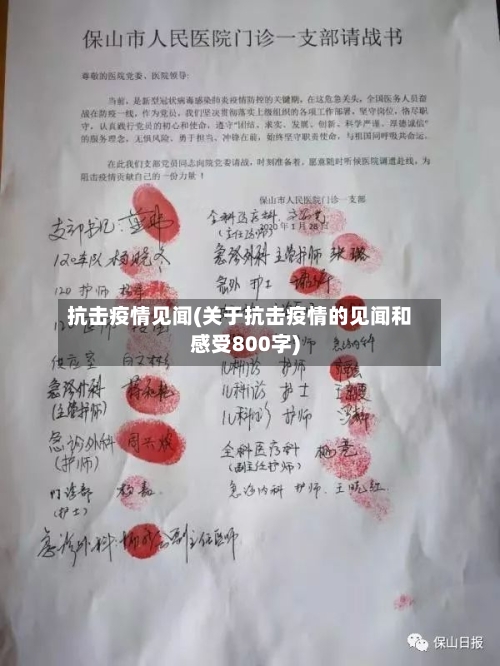 保山市人民医院门诊一支部请战书
尊敬的医院党委、医院领导:
当前,是新型冠状病毒感染肺炎疫情防控的关键期,在这危急关头,全国医务人员奋
战在防疫一线,作为党员,我们坚决贯彻落实上级组织的各项工作部署,坚守岗位,恪尽职
守,认真践行党员的初心和使命,遵守“团结、求实、发展、创新、科学严谨、厚德诚信”
的服务理念,无惧风险、勇于担当、冲锋在前,始终坚守职责使命,与祖国同呼吸共命运。
在此我们支部党员同志向院党委请战,时刻准备着,愿意随时听候医院调遣赴线,为
阻击疫情贡献自己的一份力量!
保山市人民医院门诊一支部
2020年1月28日
支部书记:
全科医疗科
(主任医师)
120车队 杨晓冬
急诊外科 主管护师 张璐
120 护师
急外 护士
抗击疫情见闻(关于抗击疫情的见闻和
感受800字)
供应室
儿科门诊 护师
急诊外科
(主管护师)
儿科门诊 护士
儿科门诊 护师
急诊外科 周兴焕
(护师)
全科医疗科 杨亮
(副主任护师)
门诊部
(护士)
急诊内科 护师 王晓红
急诊外科 副主任医师
保山日报